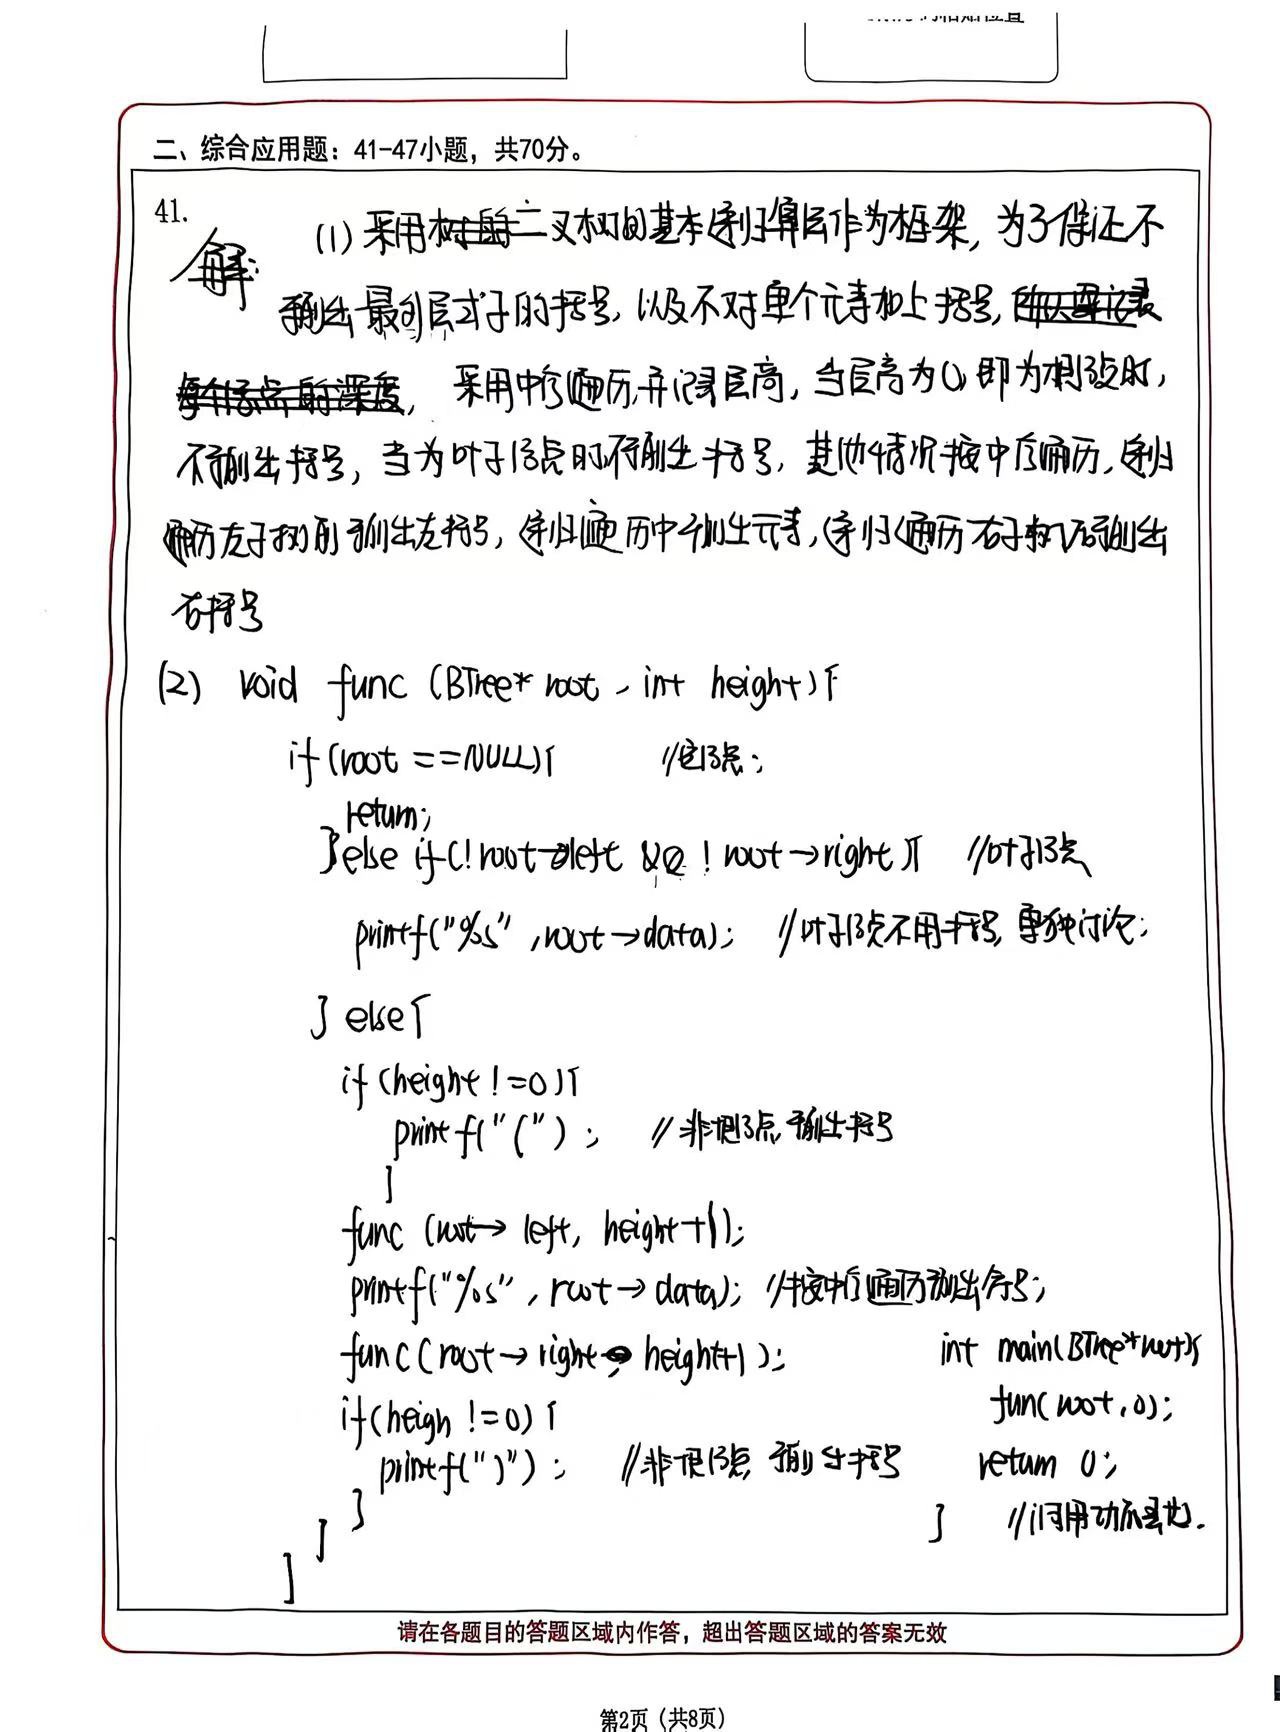 二、综合应用题：41-47小题，共70分。
41.
解: (1) 采用二叉树的基本递归算法作为框架，为了保证不
输出最外层式子的括号，以及不对单个元素加上括号，
采用中序遍历，并记录层高，当层高为0，即为根结点时，
不输出括号，当为叶子结点时不输出括号，其他情况按中序遍历，递归
遍历左子树前输出左括号，递归遍历中输出元素，递归遍历右子树后输出
右括号
(2) void func (BTree* root , int height){
if (root ==NULL){ //空结点;
return;
}else if(!root->left && !root->right){ //叶子结点
printf("%s" ,root->data); //叶子结点不用括号,单独讨论;
} else{
if (height !=0){
printf("("); //非根结点,输出括号
}
func (root-> left, height+1);
printf("%s", root->data); //按中序遍历输出符号;
func(root->right, height+1);
int main(BTree*root){
if(heigh !=0){
func(root,0);
printf(")"); //非根结点,输出括号
return 0;
}
} //调用功能函数.
}
}
请在各题目的答题区域内作答，超出答题区域的答案无效
第2页（共8页）